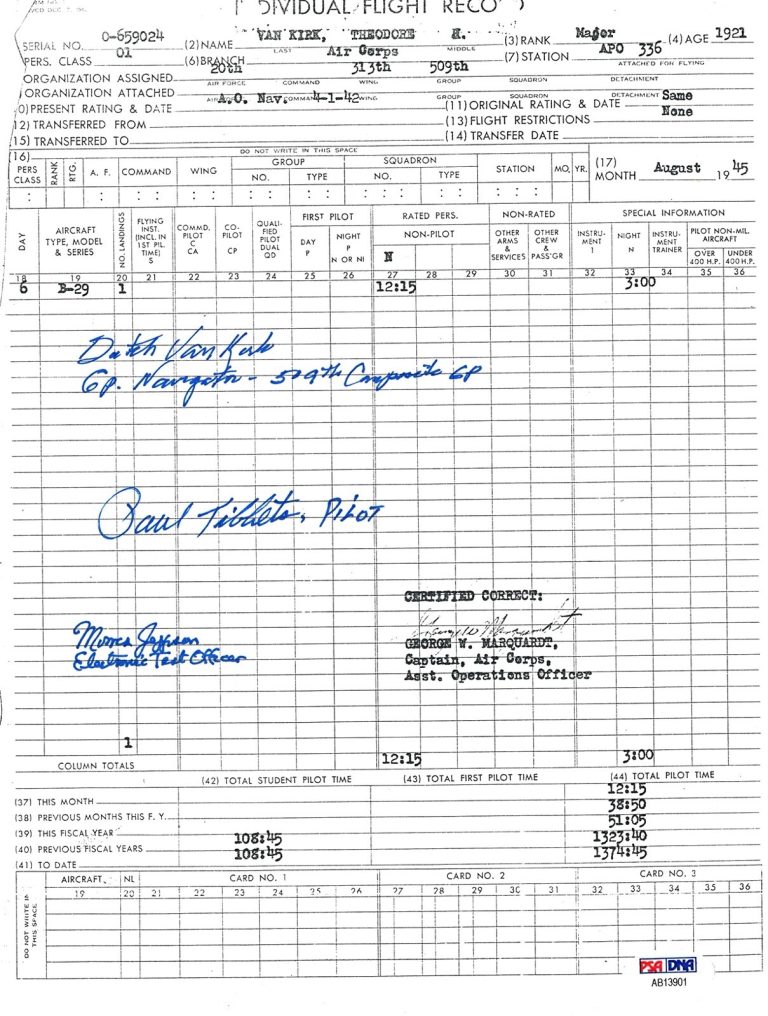 DIVIDUAL FLIGHT RECO
SERIAL NO. O-659024 (2) NAME VAN KIRK, THEODORE H. (3) RANK Major (4) AGE 1921
LAST MIDDLE
PERS. CLASS 01 (6) BRANCH Air Corps (7) STATION APO 336
ORGANIZATION ASSIGNED 20th 313th 509th ATTACHED FOR FLYING
AIR FORCE COMMAND WING GROUP SQUADRON DETACHMENT
ORGANIZATION ATTACHED
COMMAND WING GROUP SQUADRON DETACHMENT
0) PRESENT RATING & DATE A.O. Nav. 4-1-42 (11) ORIGINAL RATING & DATE Same
12) TRANSFERRED FROM (13) FLIGHT RESTRICTIONS None
15) TRANSFERRED TO (14) TRANSFER DATE
(16) DO NOT WRITE IN THIS SPACE
PERS CLASS RANK RTG. A. F. COMMAND WING GROUP NO. TYPE SQUADRON NO. TYPE STATION MO. YR. (17) MONTH August 1945
DAY AIRCRAFT TYPE, MODEL & SERIES NO. LANDINGS FLYING INST. (INCL. IN 1ST PIL. TIME) S COMMD. PILOT C CA CO-PILOT CP QUALI-FIED PILOT DUAL QD FIRST PILOT DAY P NIGHT P N OR NI RATED PERS. NON-PILOT N NON-RATED OTHER ARMS & SERVICES OTHER CREW & PASS'GR SPECIAL INFORMATION INSTRU-MENT I NIGHT N INSTRU-MENT TRAINER PILOT NON-MIL. AIRCRAFT OVER 400 H.P. UNDER 400 H.P.
18 19 20 21 22 23 24 25 26 27 28 29 30 31 32 33 34 35 36
6 B-29 1 12:15 3:00
Dutch Van Kirk
Gp. Navigator - 509th Composite GP
Paul Tibbets, PILOT
CERTIFIED CORRECT:
George W Marquardt
Morris Jeppson GEORGE W. MARQUARDT,
Electronic Test Officer Captain, Air Corps,
Asst. Operations Officer
1
COLUMN TOTALS 12:15 3:00
(42) TOTAL STUDENT PILOT TIME (43) TOTAL FIRST PILOT TIME (44) TOTAL PILOT TIME
(37) THIS MONTH 12:15
(38) PREVIOUS MONTHS THIS F. Y. 38:50
(39) THIS FISCAL YEAR 51:05
(40) PREVIOUS FISCAL YEARS 108:45 1323:40
(41) TO DATE 108:45 1374:45
DO NOT WRITE IN THIS SPACE
AIRCRAFT NL CARD NO. 1 CARD NO. 2 CARD NO. 3
19 20 21 22 23 24 25 26 27 28 29 30 31 32 33 34 35 36
PSA DNA
AB13901